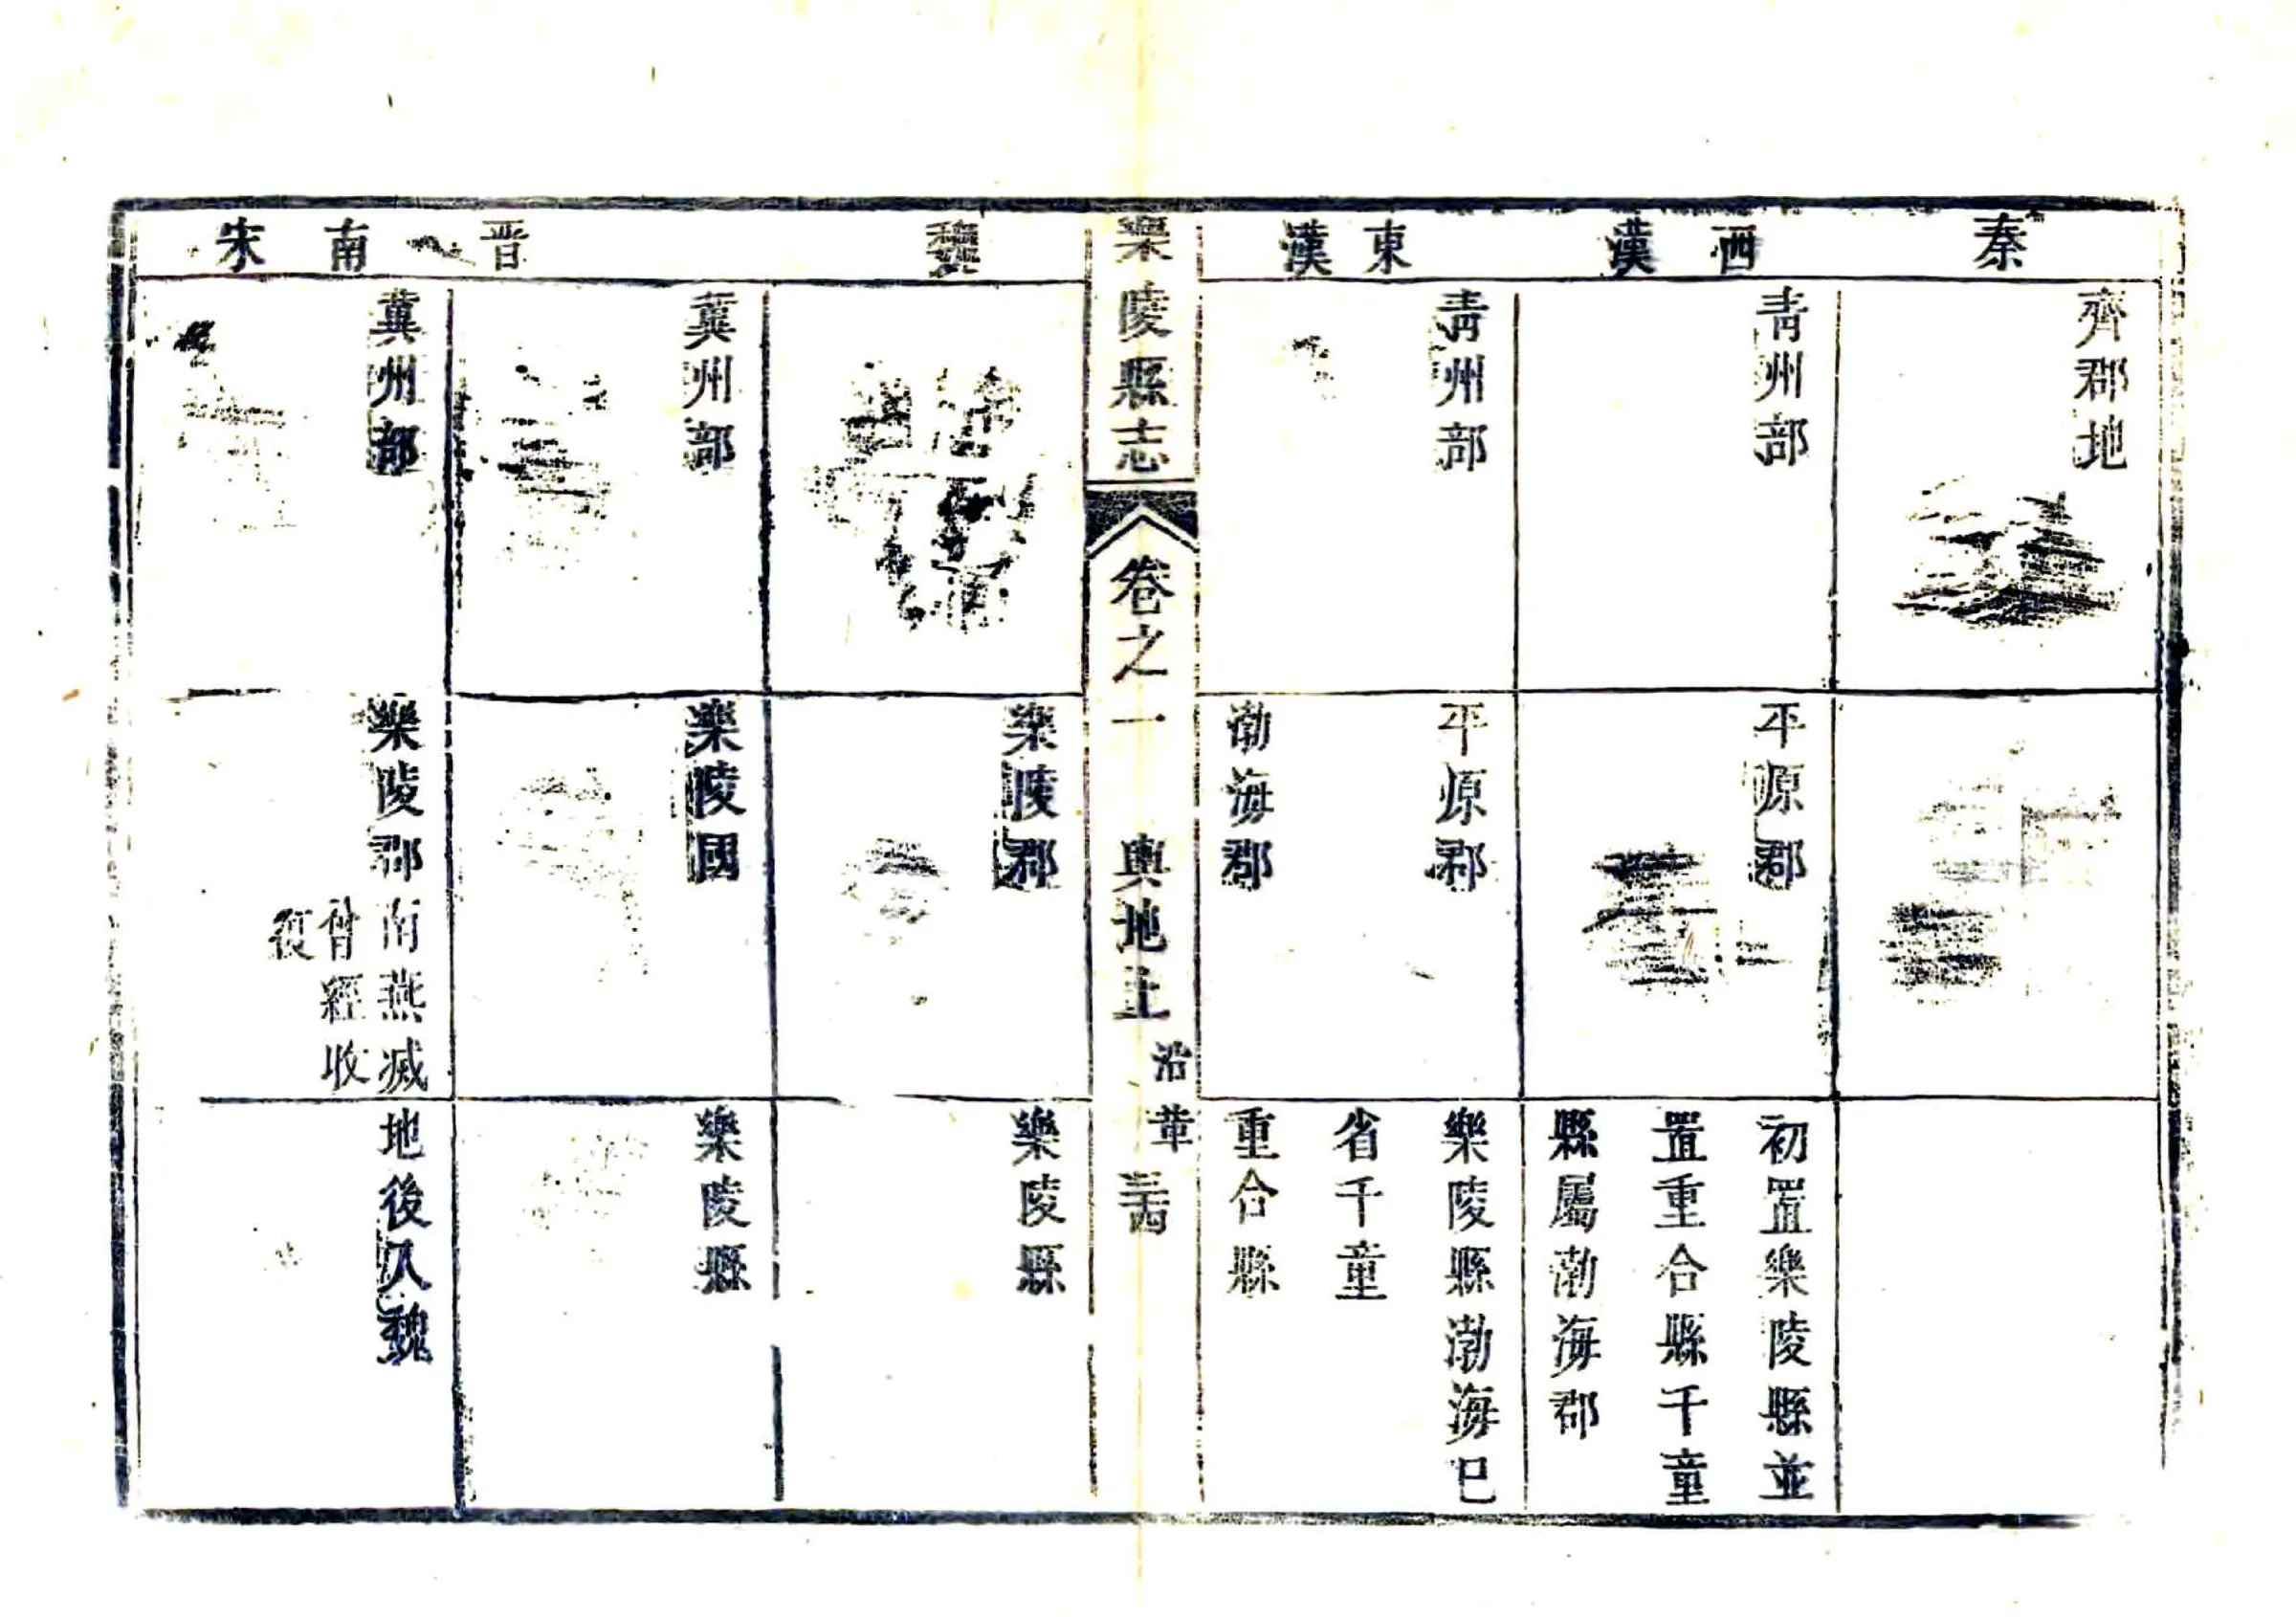 秦
齊郡地
西漢
青州部
平原郡
初置樂陵縣並
置重合縣千童
縣屬渤海郡
東漢
青州部
平原郡
渤海郡
樂陵縣渤海巳
省千童
重合縣
樂陵縣志
卷之一
輿地上
沿革
三十四
魏
樂陵郡
樂陵縣
晋
冀州部
樂陵國
樂陵縣
南宋
冀州部
樂陵郡南燕滅
曾經收
復
地後入魏